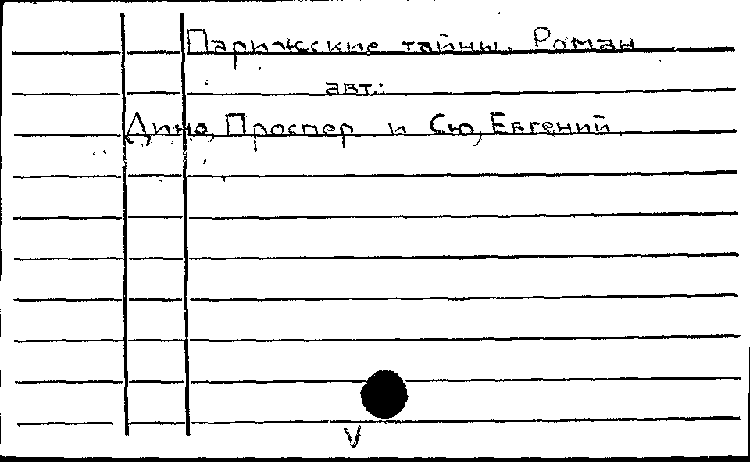 Парижские тайны. Роман
авт.:
Дино, Проспер и Сю, Евгений.
V